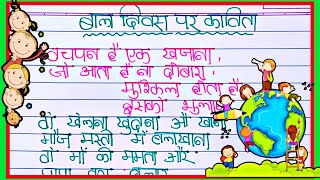 बाल दिवस पर कविता
बचपन है एक खजाना,
जो आता है ना दोबारा
मुश्किल होता है
इसको भूलाना
वो खेलना कुदना औ खाना
मौज मस्ती में बलखाना
वो माँ की ममता और